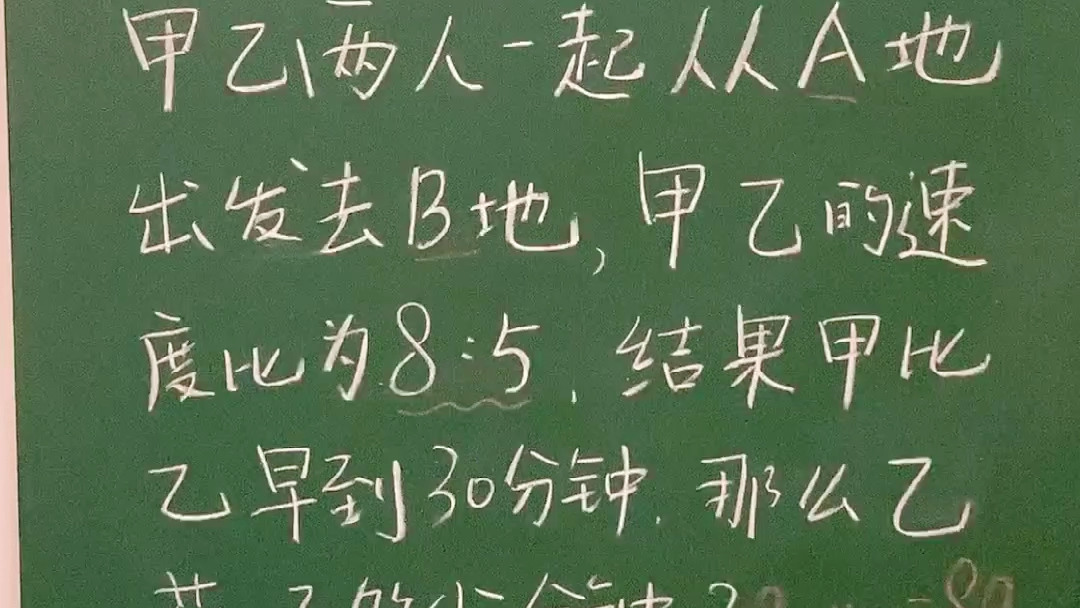 甲乙两人一起从A地
出发去B地,甲乙的速
度比为8:5.结果甲比
乙早到30分钟.那么乙